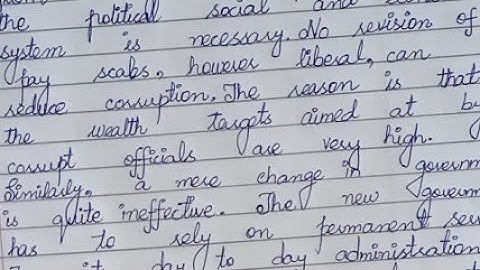 the political social and
system is necessary. No revision of
pay scales, however liberal, can
reduce corruption. The reason is that
the wealth targets aimed at by
corrupt officials are very high.
Similarly, a mere change in governm
is quite ineffective. The new governm
has to rely on permanent ser
day to day administration